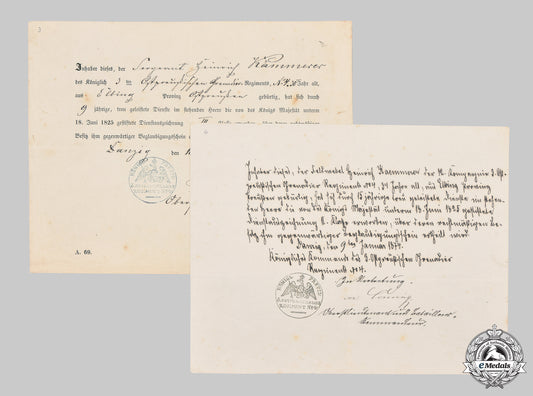 Inhaber dieses, der Sergeant Heinrich Kammerer
des Königlich 3ten Ostpreußischen Grenadier-Regiments, No 4, Jahr alt,
aus Elbing Provinz Ostpreußen gebürtig, hat sich durch
9 jährige, treu geleistete Dienste im stehenden Heere die von des Königs Majestät unterm
18. Juni 1825 gestiftete Dienstauszeichnung III
Besitz ihm gegenwärtiger Beglaubigungsschein
Danzig den
A. 69.
Inhaber dieses, der Feldwebel Heinrich Kammerer der 12. Kompagnie 3. Ost-
preußischen Grenadier Regiments No 4, 34 Jahre alt, aus Elbing Provinz
Preußen gebürtig, hat sich durch 15jährige treu geleistete Dienste im stehen-
den Heere die von des Königs Majestät unterm 18. Juni 1825 gestiftete
Dienstauszeichnung Klasse erworben, über deren rechtmäßigen Be-
sitz ihm gegenwärtiger Beglaubigungsschein ertheilt wird
Danzig, den 9ten Januar
Königliches Kommando des 3. Ostpreußischen Grenadier
Regiments No 4.
In Vertretung
Oberstlieutenant und Bataillons-
Kommandeur.
KÖNIGL. PREUSS.
REGIMENT No 4
eMedals